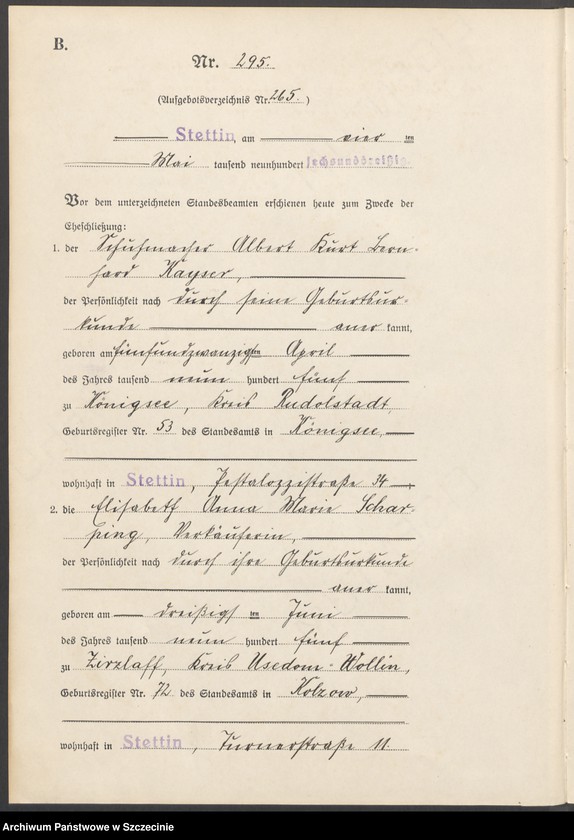 B.
Nr. 295.
(Aufgebotsverzeichnis Nr. 265.)
Stettin, am vier ten
Mai tausend neunhundert sechsunddreißig.
Vor dem unterzeichneten Standesbeamten erschienen heute zum Zwecke der
Eheschließung:
1. der Schuhmacher Albert Kurt Bern-
hard Kayser,
der Persönlichkeit nach durch seine Geburtsur-
kunde aner kannt,
geboren am fünfundzwanzigsten April
des Jahres tausend neun hundert fünf
zu Königsee, Kreis Rudolstadt,
Geburtsregister Nr. 53 des Standesamts in Königsee,
wohnhaft in Stettin, Pestalozzistraße 34
2. die Elisabeth Anna Marie Schar-
ping, Verkäuferin,
der Persönlichkeit nach durch ihre Geburtsurkunde
aner kannt,
geboren am dreißigs ten Juni
des Jahres tausend neun hundert fünf
zu Zirzlaff, Kreis Usedom-Wollin,
Geburtsregister Nr. 72 des Standesamts in Kolzow,
wohnhaft in Stettin, Turnerstraße 11.
Archiwum Państwowe w Szczecinie